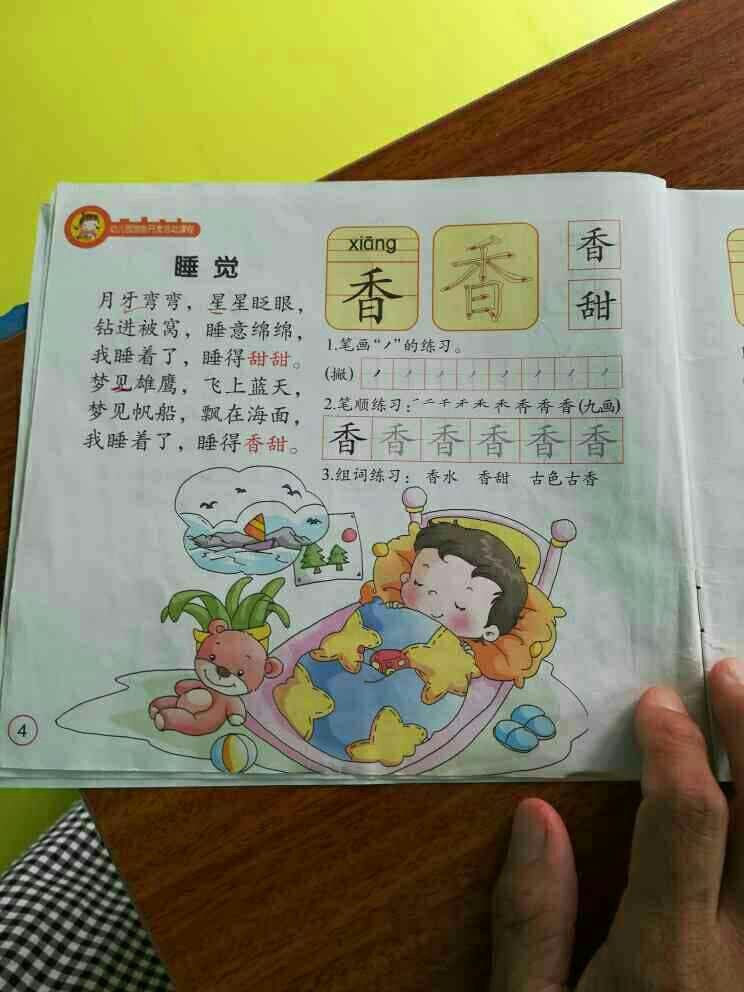 睡觉
月牙弯弯，星星眨眼，
钻进被窝，睡意绵绵，
我睡着了，睡得甜甜。
梦见雄鹰，飞上蓝天，
梦见帆船，飘在海面，
我睡着了，睡得香甜。
xiāng
香 香
香
甜
1.笔画“丿”的练习。
(撇) 丿 丿 丿 丿 丿 丿 丿 丿
2.笔顺练习：香 香 (九画)
香 香 香 香 香 香
3.组词练习： 香水 香甜 古色古香
4